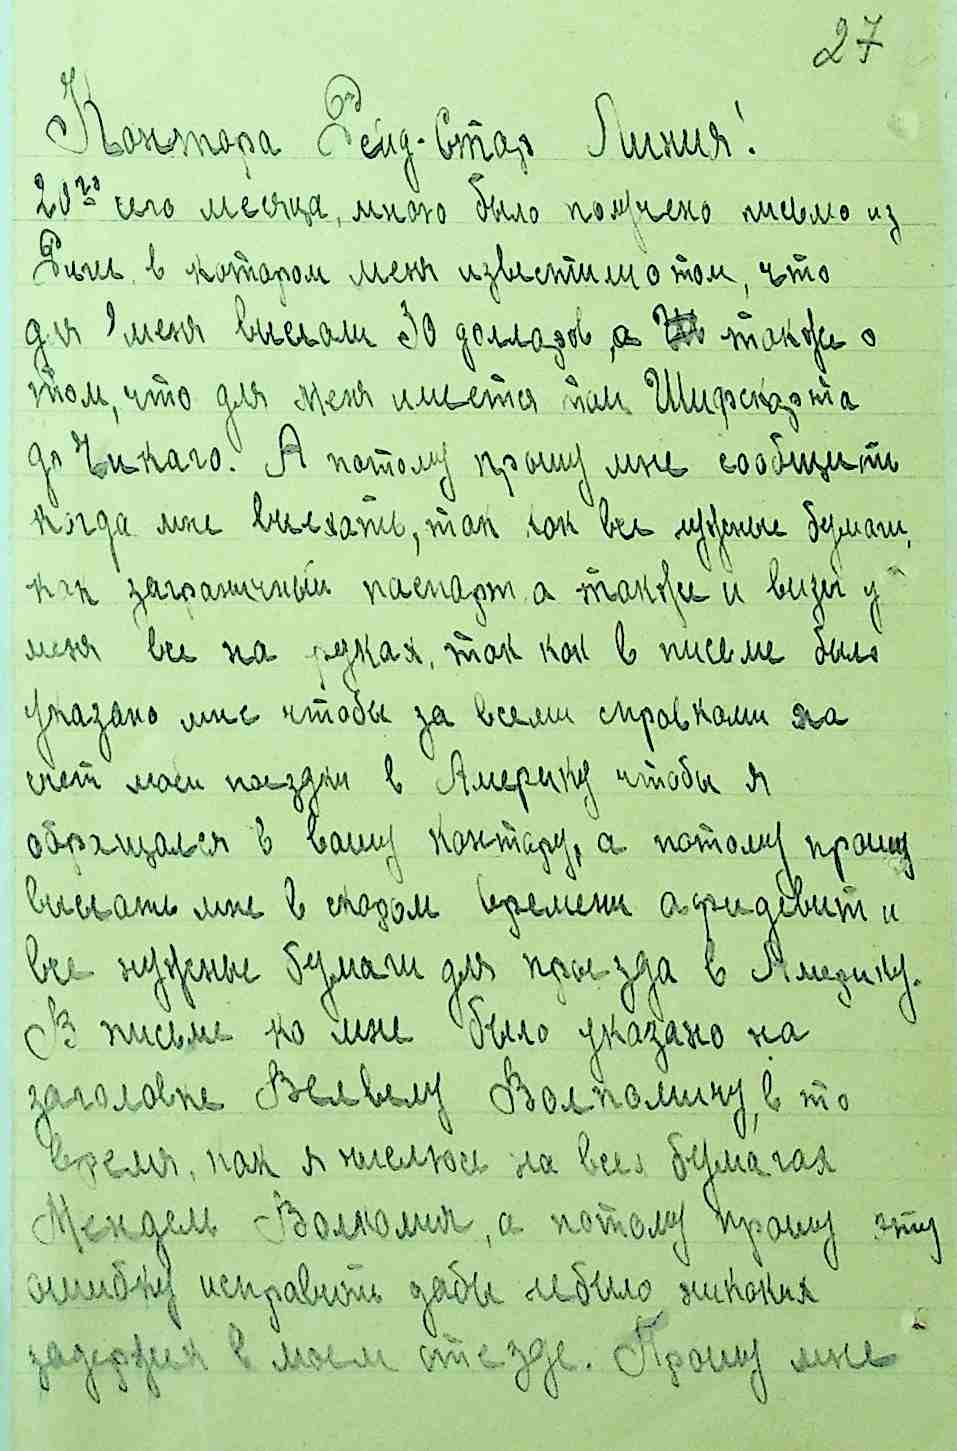 27
Контора Рейд-Стар Линия!
20го сего месяца, мною было получено письмо из
Риги, в котором меня известили о том, что
для меня выслали 30 долларов, а также о
том, что для меня имеется там Шифскарта
до Чикаго. А потому прошу мне сообщить
когда мне выехать, так как все нужные бумаги,
как заграничный паспорт а также и визы у
меня все на руках, так как в письме было
указано мне чтобы за всеми справками на
счет моей поездки в Америку чтобы я
обращался в вашу контору, а потому прошу
выслать мне в скором времени афидевит и
все нужные бумаги для проезда в Америку.
В письме ко мне было указано на
заголовке Велвелу, в то
время, как я числюсь на всех бумагах
Мендель, а потому прошу эту
ошибку исправить дабы небыло никаких
в моем отезде. Прошу мне